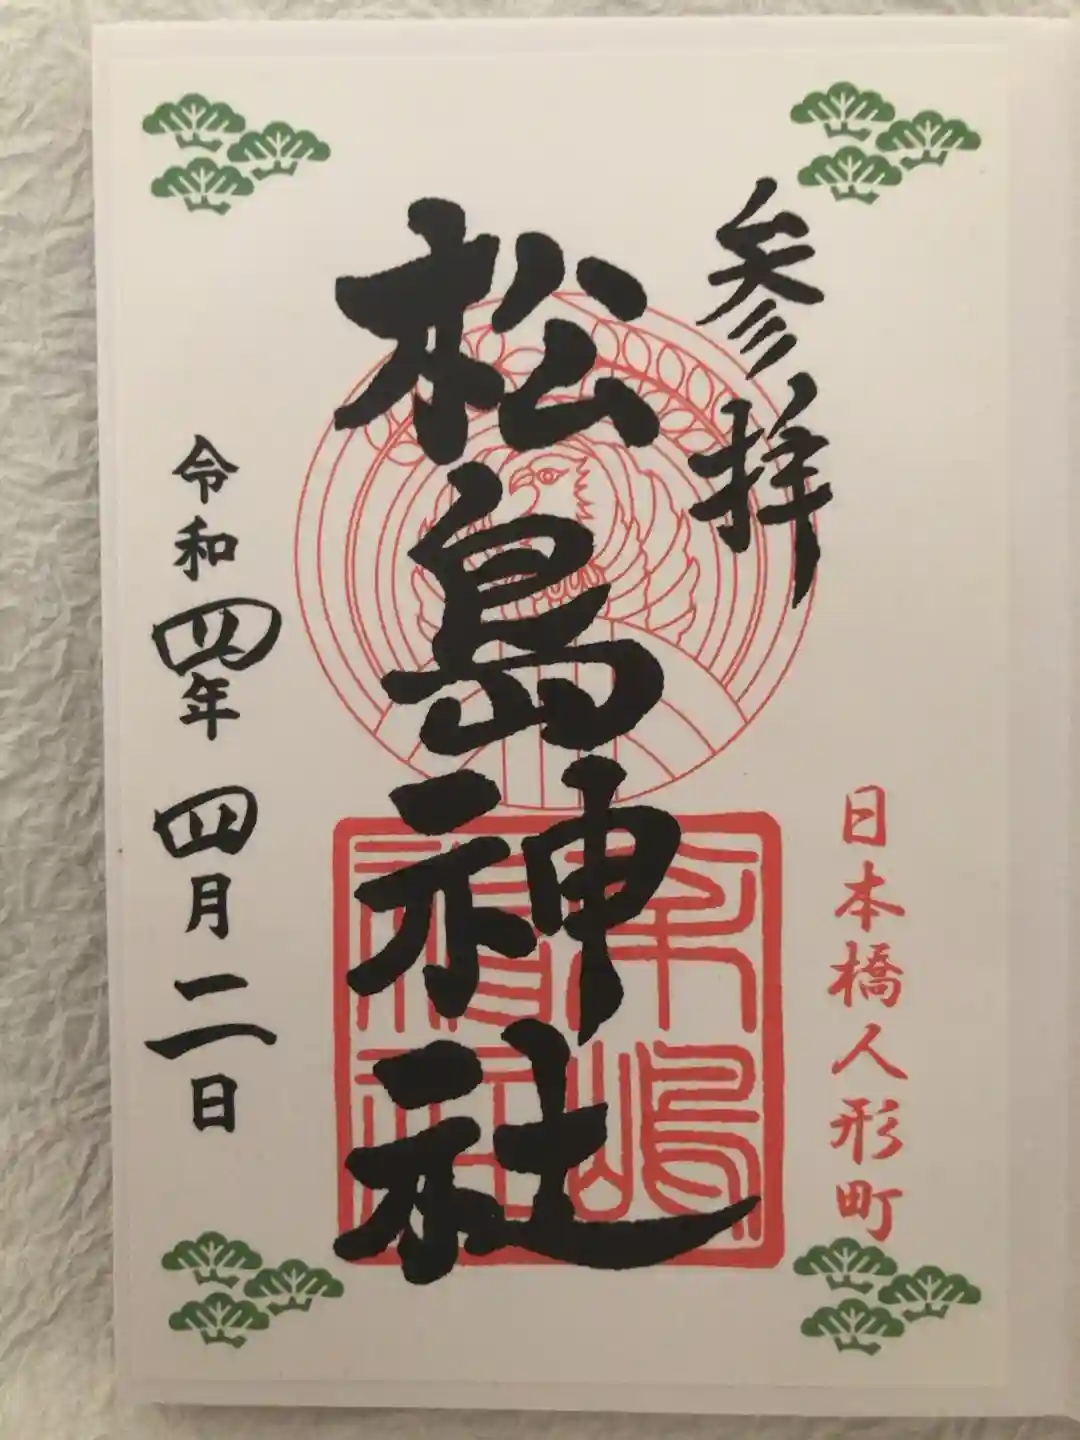 参拝
日本橋人形町
松島神社
令和四年四月二日